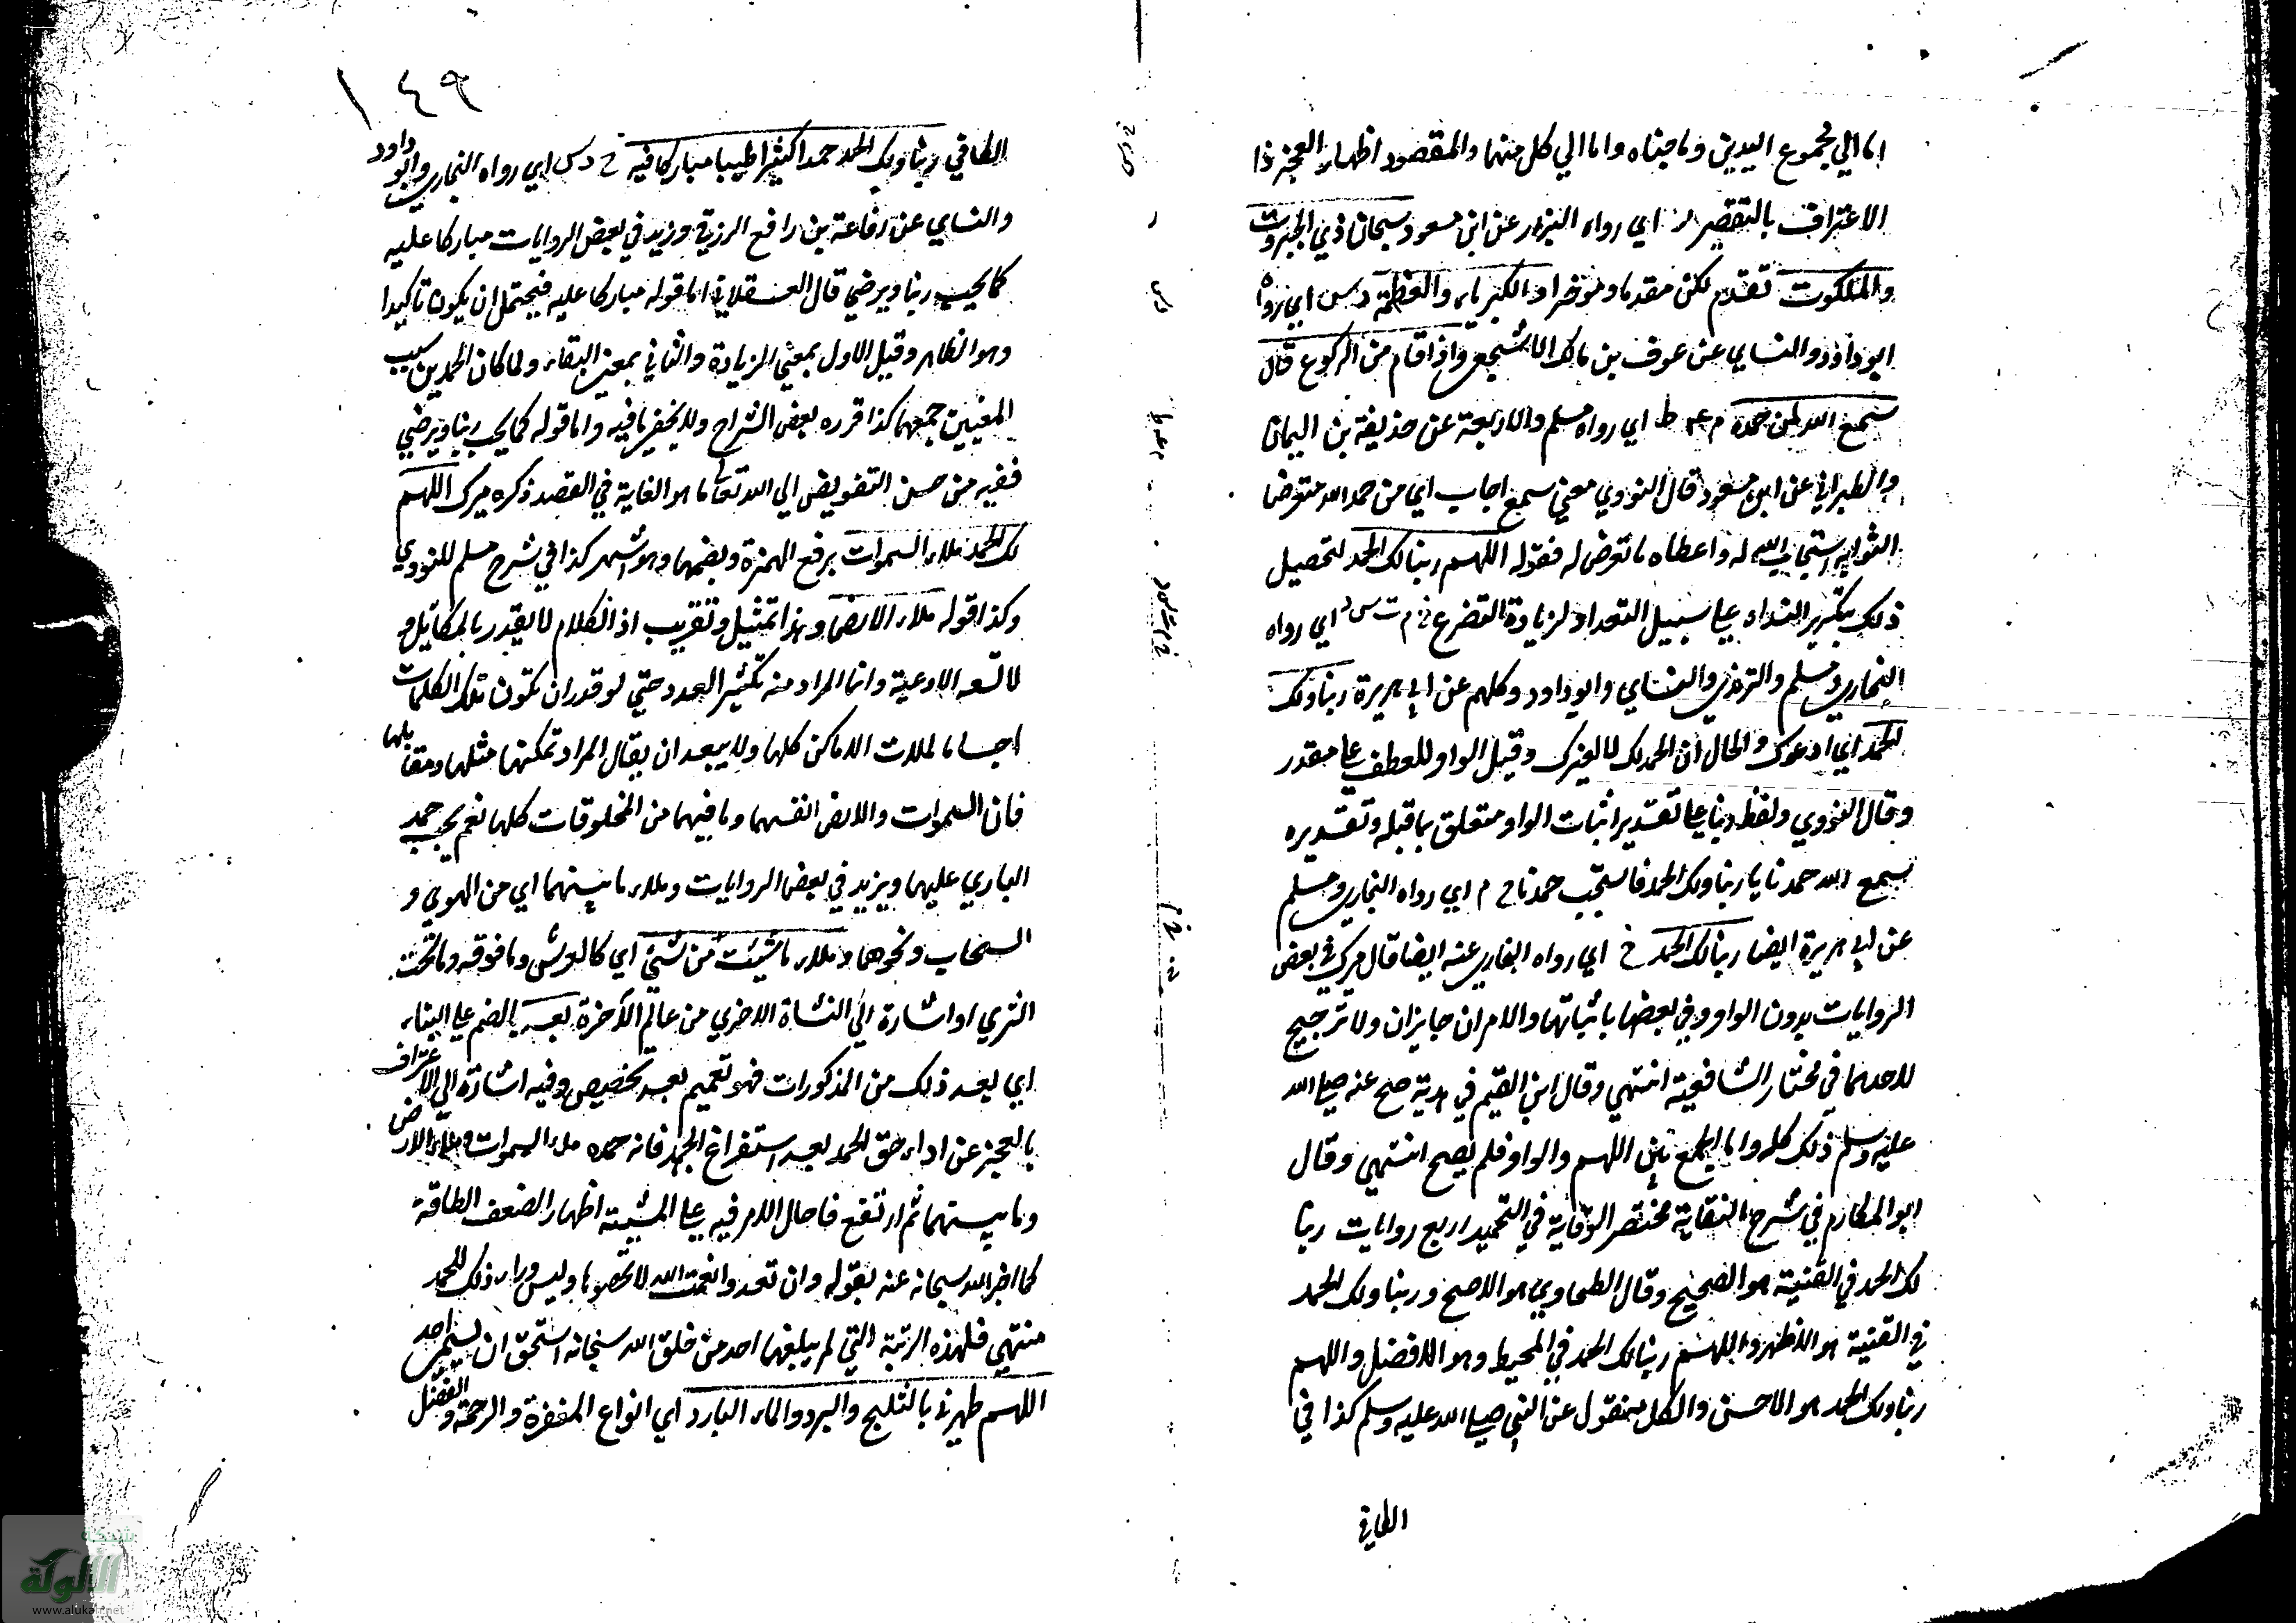 اما الي مجموع اليدين وما جناه واما الي كل منهما والمقصود اظهار العجز ذا
الاعتراف بالتقصير ر اي رواه البزار عن ابن مسعود سبحان ذي الجبروت
والملكوت تقدم لكن مقدما ومؤخرا والكبرياء والعظمة د س اي رواه
ابو داود والنساي عن عوف بن مالك الاشجعي واذا قام من الركوع قال
سمع الله لمن حمده م عه ط اي رواه مسلم والاربعة عن حذيفة بن اليمان
والطبراني عن ابن مسعود قال النووي معني سمع اجاب اي من حمد الله متعرضا
لثوابه استجاب الله له واعطاه ما تعرض له فقوله اللهم ربنا لك الحمد لتحصيل
ذلك بتكرير النداء علي سبيل التعداد لزيادة التضرع خ م ت س د اي رواه
البخاري ومسلم والترمذي والنساي وابو داود وكلهم عن ابي هريرة ربنا ولك
الحمد اي ادعوك والحال ان الحمد لك لا لغيرك وقيل الواو للعطف علي مقدر
وقال النووي ولفظ ربنا علي تقدير اثبات الواو متعلق بما قبله وتقديره
سمع الله حمدنا يا ربنا ولك الحمد فاستجب حمدنا خ م اي رواه البخاري ومسلم
عن ابي هريرة ايضا ربنا لك الحمد خ اي رواه البخاري عنه ايضا قال ميرك في بعض
الروايات بدون الواو وفي بعضها باثباتها والامران جايزان ولا ترجيح
لاحدهما في مختار الشافعية انتهي وقال ابن القيم في هديه صح عنه صلي الله
عليه وسلم ذلك كله واما الجمع بين اللهم والواو فلم يصح انتهي وقال
ابو المكارم في شرح النقاية مختصر الوقاية في التحميد اربع روايات ربنا
لك الحمد في القنية هو الصحيح وقال الطحاوي هو الاصح وربنا ولك الحمد
في القنية هو الاظهر واللهم ربنا لك الحمد في المحيط وهو الافضل واللهم
ربنا ولك الحمد هو الاحسن والكل منقول عن النبي صلي الله عليه وسلم كذا في
الكافي
١٤٩
الكافي ربنا ولك الحمد حمدا كثيرا طيبا مباركا فيه خ د س اي رواه البخاري وابو داود
والنساي عن رفاعة بن رافع الزرقي وزيد في بعض الروايات مباركا عليه
كما يحب ربنا ويرضي قال العسقلاني اما قوله مباركا عليه فيحتمل ان يكون تاكيدا
وهو الظاهر وقيل الاول بمعني الزيادة والثاني بمعني البقاء ولما كان الحمد يناسب
المعنيين جمعهما كذا قرره بعض الشراح ولا يخفي ما فيه واما قوله كما يحب ربنا ويرضي
ففيه من حسن التفويض الي الله تعالي ما هو الغاية في القصد ذكره ميرك اللهم
لك الحمد ملاء السموات برفع الهمزة وبضمها وهو اشهر كذا في شرح مسلم للنووي
وكذا قوله ملاء الارض وهذا تمثيل وتقريب اذ الكلام لا يقدر بالمكاييل و
لا تسعه الاوعية وانما المراد منه تكثير العدد حتي لو قدر ان تكون تلك الكلمات
اجساما لملات الاماكن كلها ولا يبعد ان يقال المراد تمكنها مثلها ومقابلها
فان السموات والارض انفسهما وما فيهما من المخلوقات كلها نعم يجب حمد
الباري عليهما ويزيد في بعض الروايات وملاء ما بينهما اي من الهوي و
السحاب ونحوهما وملاء ما شيت من شئ اي كالعرش وما فوقه وما تحت
الثري او اشارة الي النشاة الاخري من عالم الآخرة بعد بالضم علي البناء
اي بعد ذلك من المذكورات فهو تعميم بعد تخصيص وفيه اشارة الي الاعتراف
بالعجز عن اداء حق الحمد بعد استفراغ الجهد فانه حمده ملاء السموات وملاء الارض
وما بينهما ثم ارتفع فاحال الامر فيه علي المشيئة اظهارا لضعف الطاقة
كما اخبر الله سبحانه عنه بقوله وان تعدوا نعمت الله لا تحصوها وليس وراء ذلك للحمد
منتهي فلهذه الرتبة التي لم يبلغها احد من خلق الله سبحانه استحق ان يسمي احمد
اللهم طهرني بالثلج والبرد والماء البارد اي انواع المغفرة والرحمة والفضل
شبكة
الألوكة
www.alukah.net